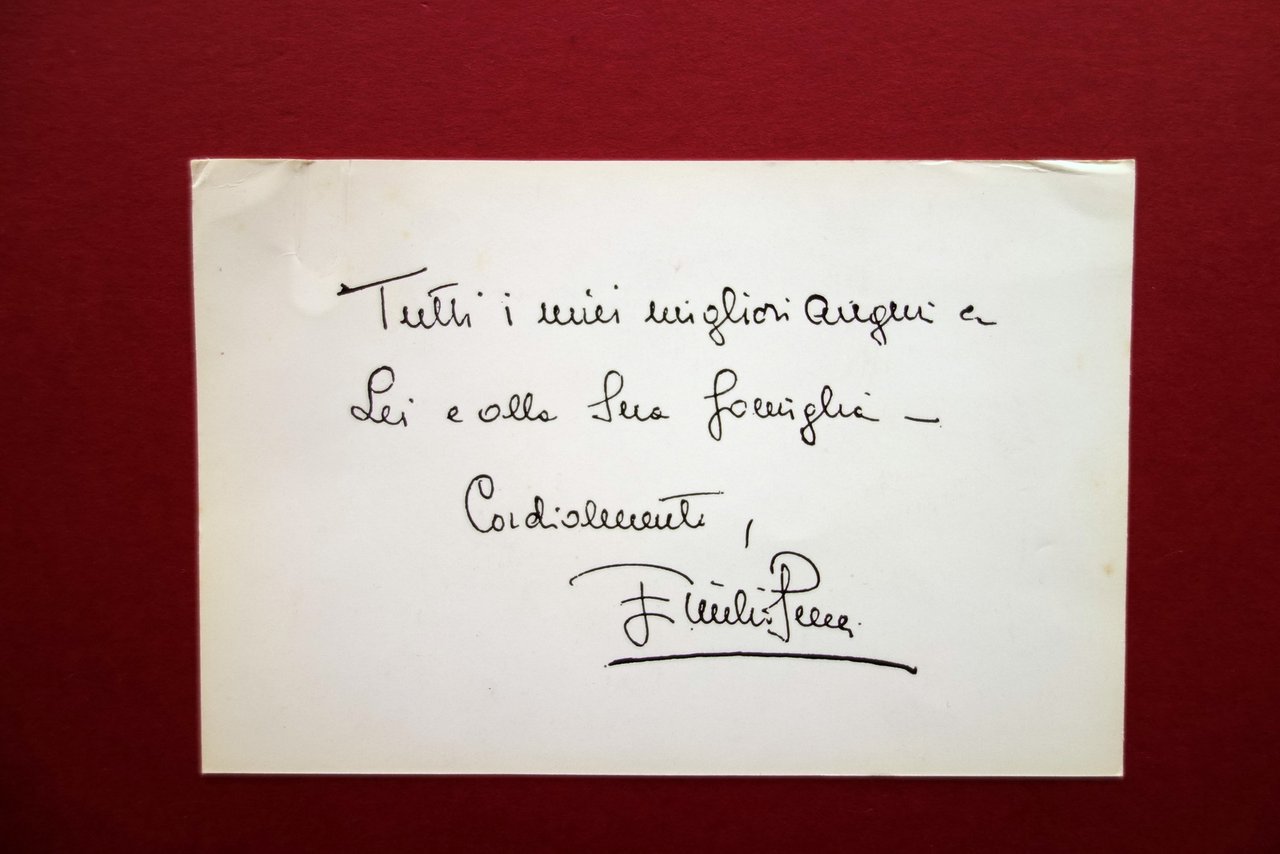 Tutti i miei migliori auguri a
Lei e alla Sua famiglia –
Cordialmente,
Emilio